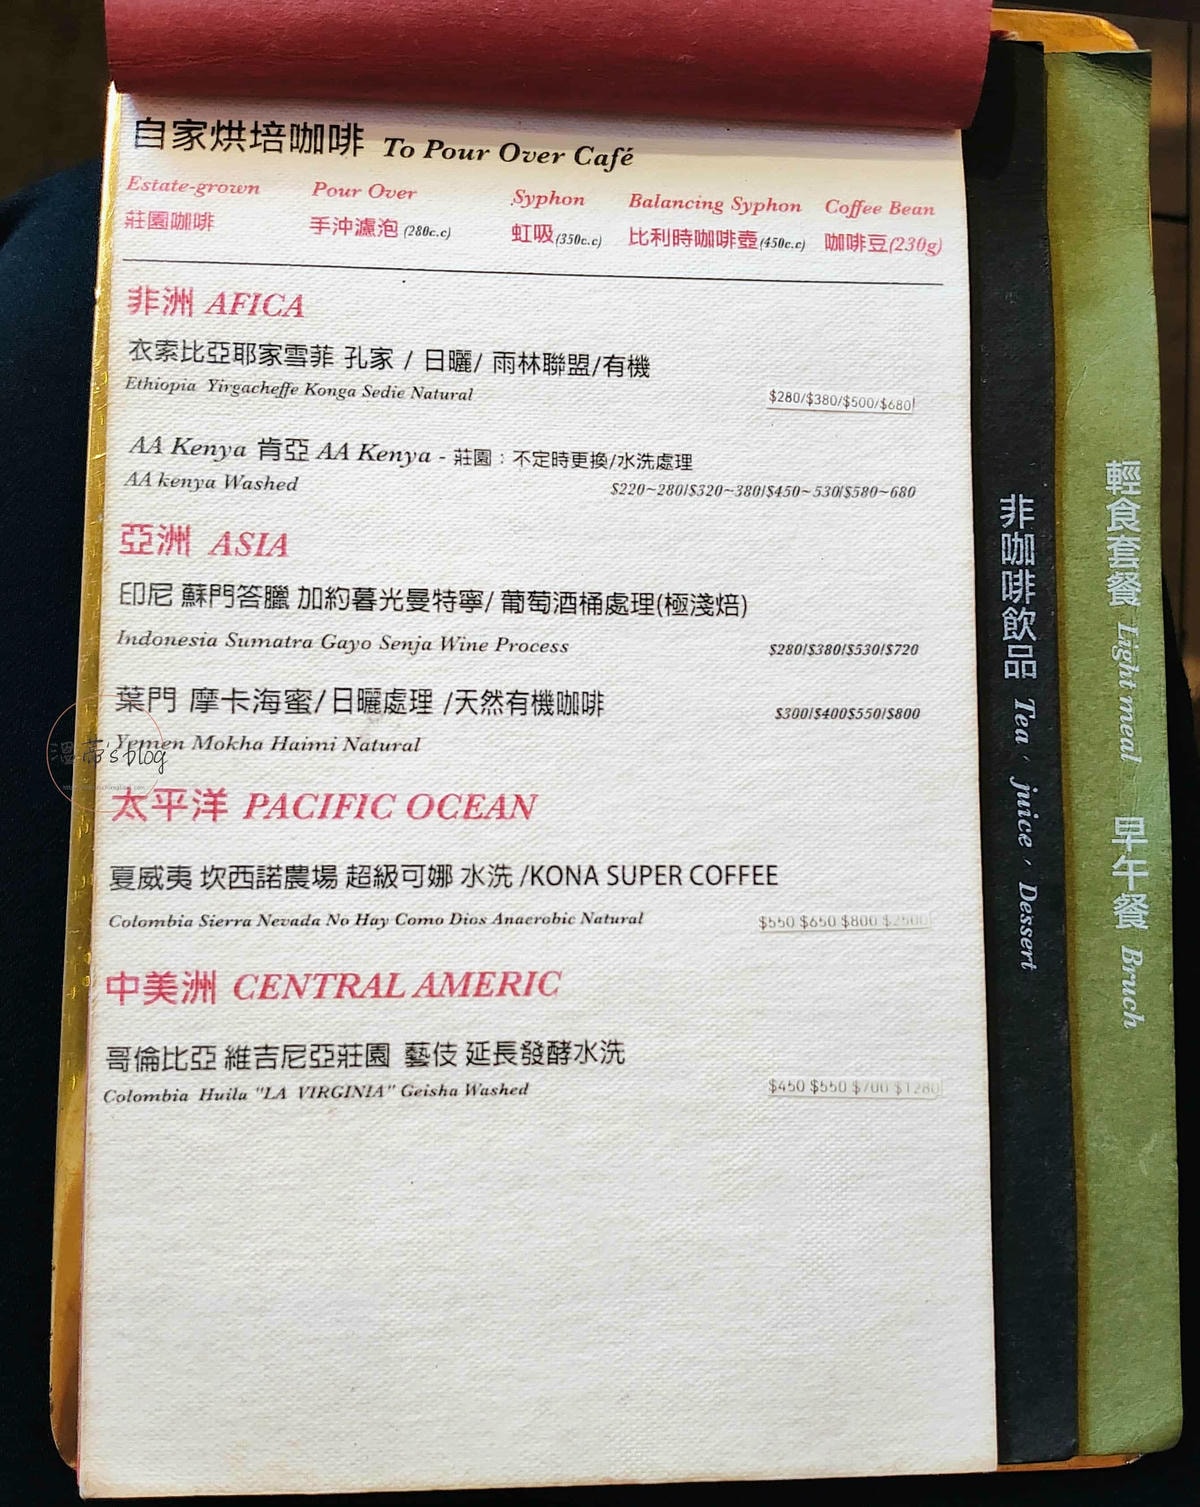 自家烘培咖啡 To Pour Over Café
Estate-grown Pour Over Syphon Balancing Syphon Coffee Bean
莊園咖啡 手沖濾泡 (280c.c) 虹吸(350c.c) 比利時咖啡壺(450c.c) 咖啡豆(230g)
非洲 AFICA
衣索比亞耶家雪菲 孔家 / 日曬/ 雨林聯盟/有機
Ethiopia Yirgacheffe Konga Sedie Natural
$280/$380/$500/$680
AA Kenya 肯亞 AA Kenya - 莊園：不定時更換/水洗處理
AA kenya Washed
$220~280|$320~380|$450~530|$580~680
亞洲 ASIA
印尼 蘇門答臘 加約暮光曼特寧/ 葡萄酒桶處理(極淺焙)
Indonesia Sumatra Gayo Senja Wine Process
$280|$380|$530|$720
葉門 摩卡海蜜/日曬處理 /天然有機咖啡
$300|$400$550|$800
Yemen Mokha Haimi Natural
太平洋 PACIFIC OCEAN
夏威夷 坎西諾農場 超級可娜 水洗 /KONA SUPER COFFEE
Colombia Sierra Nevada No Hay Como Dios Anaerobic Natural
$550 $650 $800 $2500
中美洲 CENTRAL AMERIC
哥倫比亞 維吉尼亞莊園 藝伎 延長發酵水洗
Colombia Huila "LA VIRGINIA" Geisha Washed
$450 $550 $700 $1280
非咖啡飲品 Tea、juice、Dessert
輕食套餐 Light meal 早午餐 Bruch
溫蒂's blog